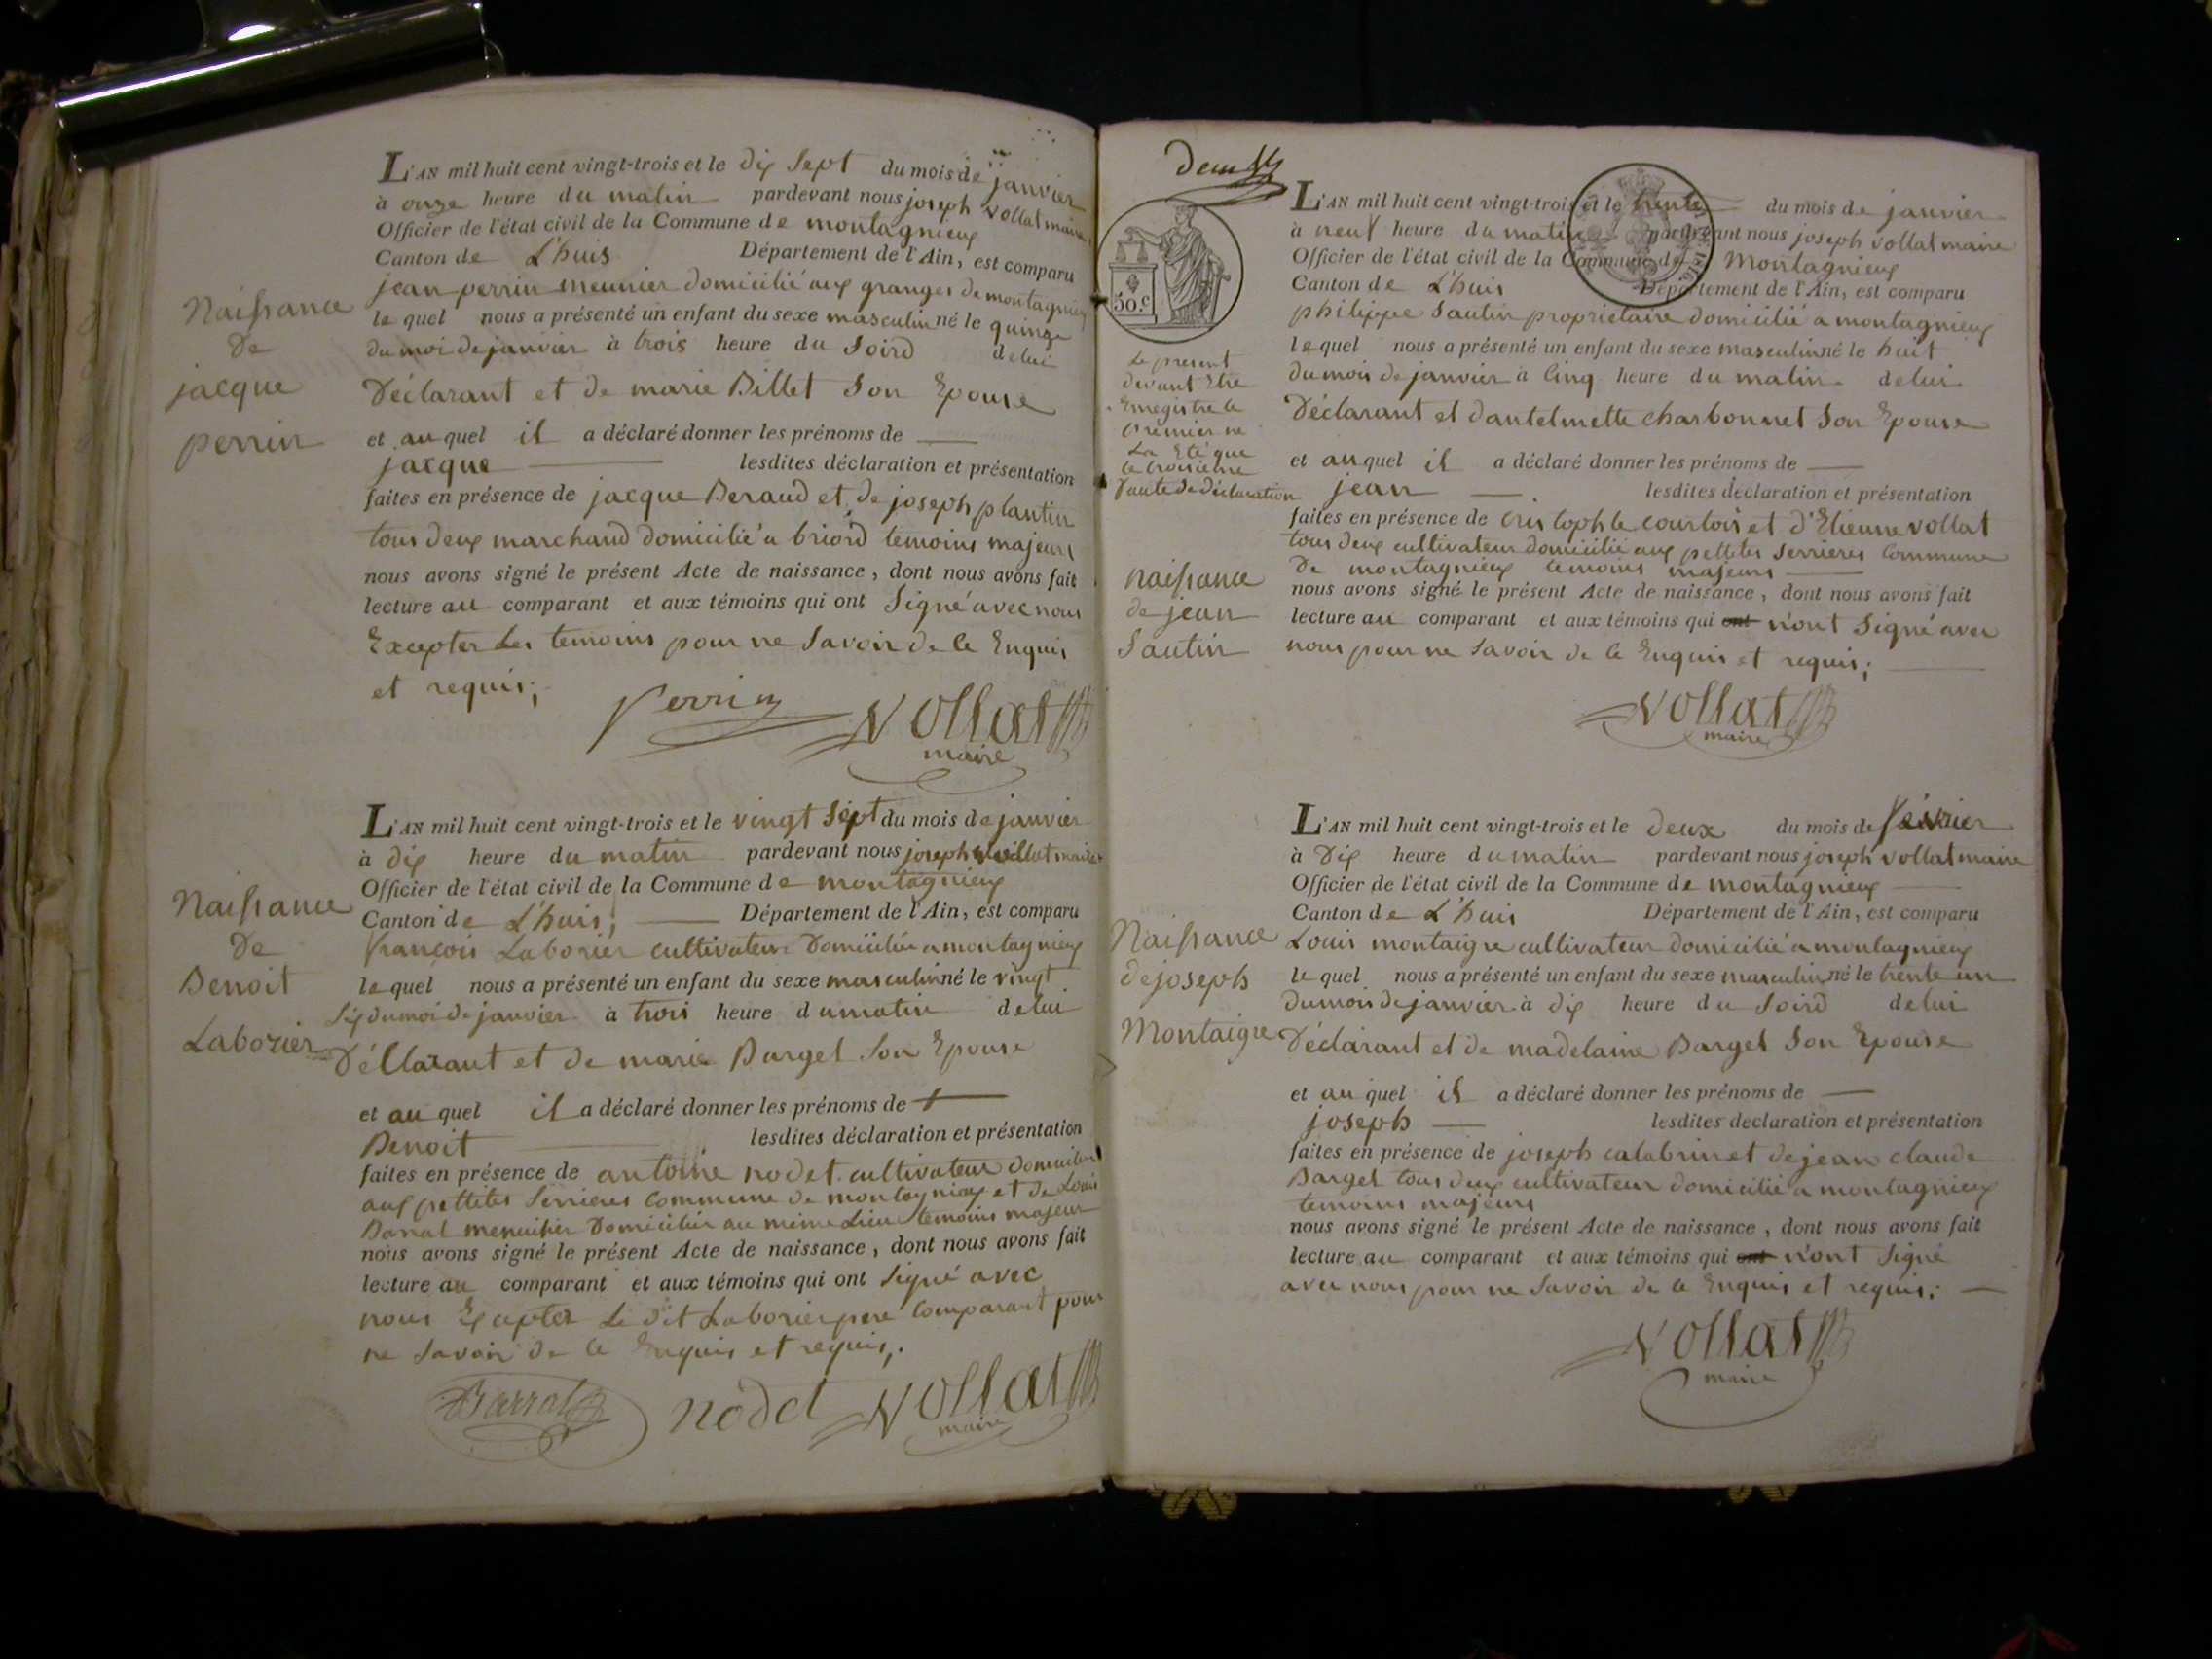 L'AN mil huit cent vingt-trois et le dix sept du mois de janvier
à onze heure du matin pardevant nous joseph vollat maire
Officier de l'état civil de la Commune de montagnieux
Canton de L'huis Département de l'Ain, est comparu
jean perrin meunier domicilié aux granges de montagnieux
le quel nous a présenté un enfant du sexe masculin né le quinze
du moi de janvier à trois heure du soird de lui
Déclarant et de marie Billet son Epouse
et au quel il a déclaré donner les prénoms de
jacque lesdites déclaration et présentation
faites en présence de jacque Beraud et de joseph plantin
tous deux marchand domicilié a briord temoins majeurs
nous avons signé le présent Acte de naissance, dont nous avons fait
lecture au comparant et aux témoins qui ont signé avec nous
Excepter Les temoins pour ne savoir de ce Enquis
et requis;
Perrin Vollat
maire
Naissance
De
jacque
perrin
L'AN mil huit cent vingt-trois et le vingt sept du mois de janvier
à dix heure du matin pardevant nous joseph vollat maire
Officier de l'état civil de la Commune de montagnieux
Canton de L'huis, Département de l'Ain, est comparu
François Laborier cultivateur Domicilié a montagnieux
le quel nous a présenté un enfant du sexe masculin né le vingt
six du moi de janvier à trois heure du matin de lui
Déclarant et de marie Barget son Epouse
et au quel il a déclaré donner les prénoms de
Benoit lesdites déclaration et présentation
faites en présence de antoine nodet cultivateur domicilié
aux pettites serrieres commune de montagnieux et de Louis
Barral menuisier Domicilié au même Lieu temoins majeur
nous avons signé le présent Acte de naissance, dont nous avons fait
lecture au comparant et aux témoins qui ont signé avec
nous Excepter Le dit Laborier pere comparant pour
ne savoir de ce Enquis et requis,.
Barral nodet Vollat
maire
Naissance
De
Benoit
Laborier
50.c
Le present
devant Etre
Enregistre le
premier ne
La Eté que
le troisieme
faute de déclaration
L'AN mil huit cent vingt-trois et le trente du mois de janvier
à neuf heure du matin pardevant nous joseph vollat maire
Officier de l'état civil de la Commune de Montagnieux
Canton de L'huis Département de l'Ain, est comparu
philippe Sautin proprietaire domicilié a montagnieux
le quel nous a présenté un enfant du sexe masculin né le huit
du mois de janvier à cinq heure du matin de lui
Déclarant et dantelmette charbonnet son Epouse
et au quel il a déclaré donner les prénoms de
jean lesdites déclaration et présentation
faites en présence de cristophle courtois et d'Etienne vollat
tous deux cultivateur domicilié aux pettites serrieres commune
De montagnieux temoins majeurs
nous avons signé le présent Acte de naissance, dont nous avons fait
lecture au comparant et aux témoins qui ont n'ont signé avec
nous pour ne savoir de ce Enquis et requis;
Vollat
maire
naissance
de jean
Sautin
L'AN mil huit cent vingt-trois et le deux du mois de février
à Dix heure du matin pardevant nous joseph vollat maire
Officier de l'état civil de la Commune de montagnieux
Canton de L'huis Département de l'Ain, est comparu
Louis montaigre cultivateur domicilié a montagnieux
le quel nous a présenté un enfant du sexe masculin né le trente un
du mois de janvier à dix heure du soird de lui
Déclarant et de madelaine Barget son Epouse
et au quel il a déclaré donner les prénoms de
joseph lesdites declaration et présentation
faites en présence de joseph calabrin et de jean claude
Barget tous deux cultivateur domicilié a montagnieux
temoins majeurs
nous avons signé le présent Acte de naissance, dont nous avons fait
lecture au comparant et aux témoins qui ont n'ont signé
avec nous pour ne savoir de ce Enquis et requis;
Vollat
maire
Naissance
de joseph
Montaigre